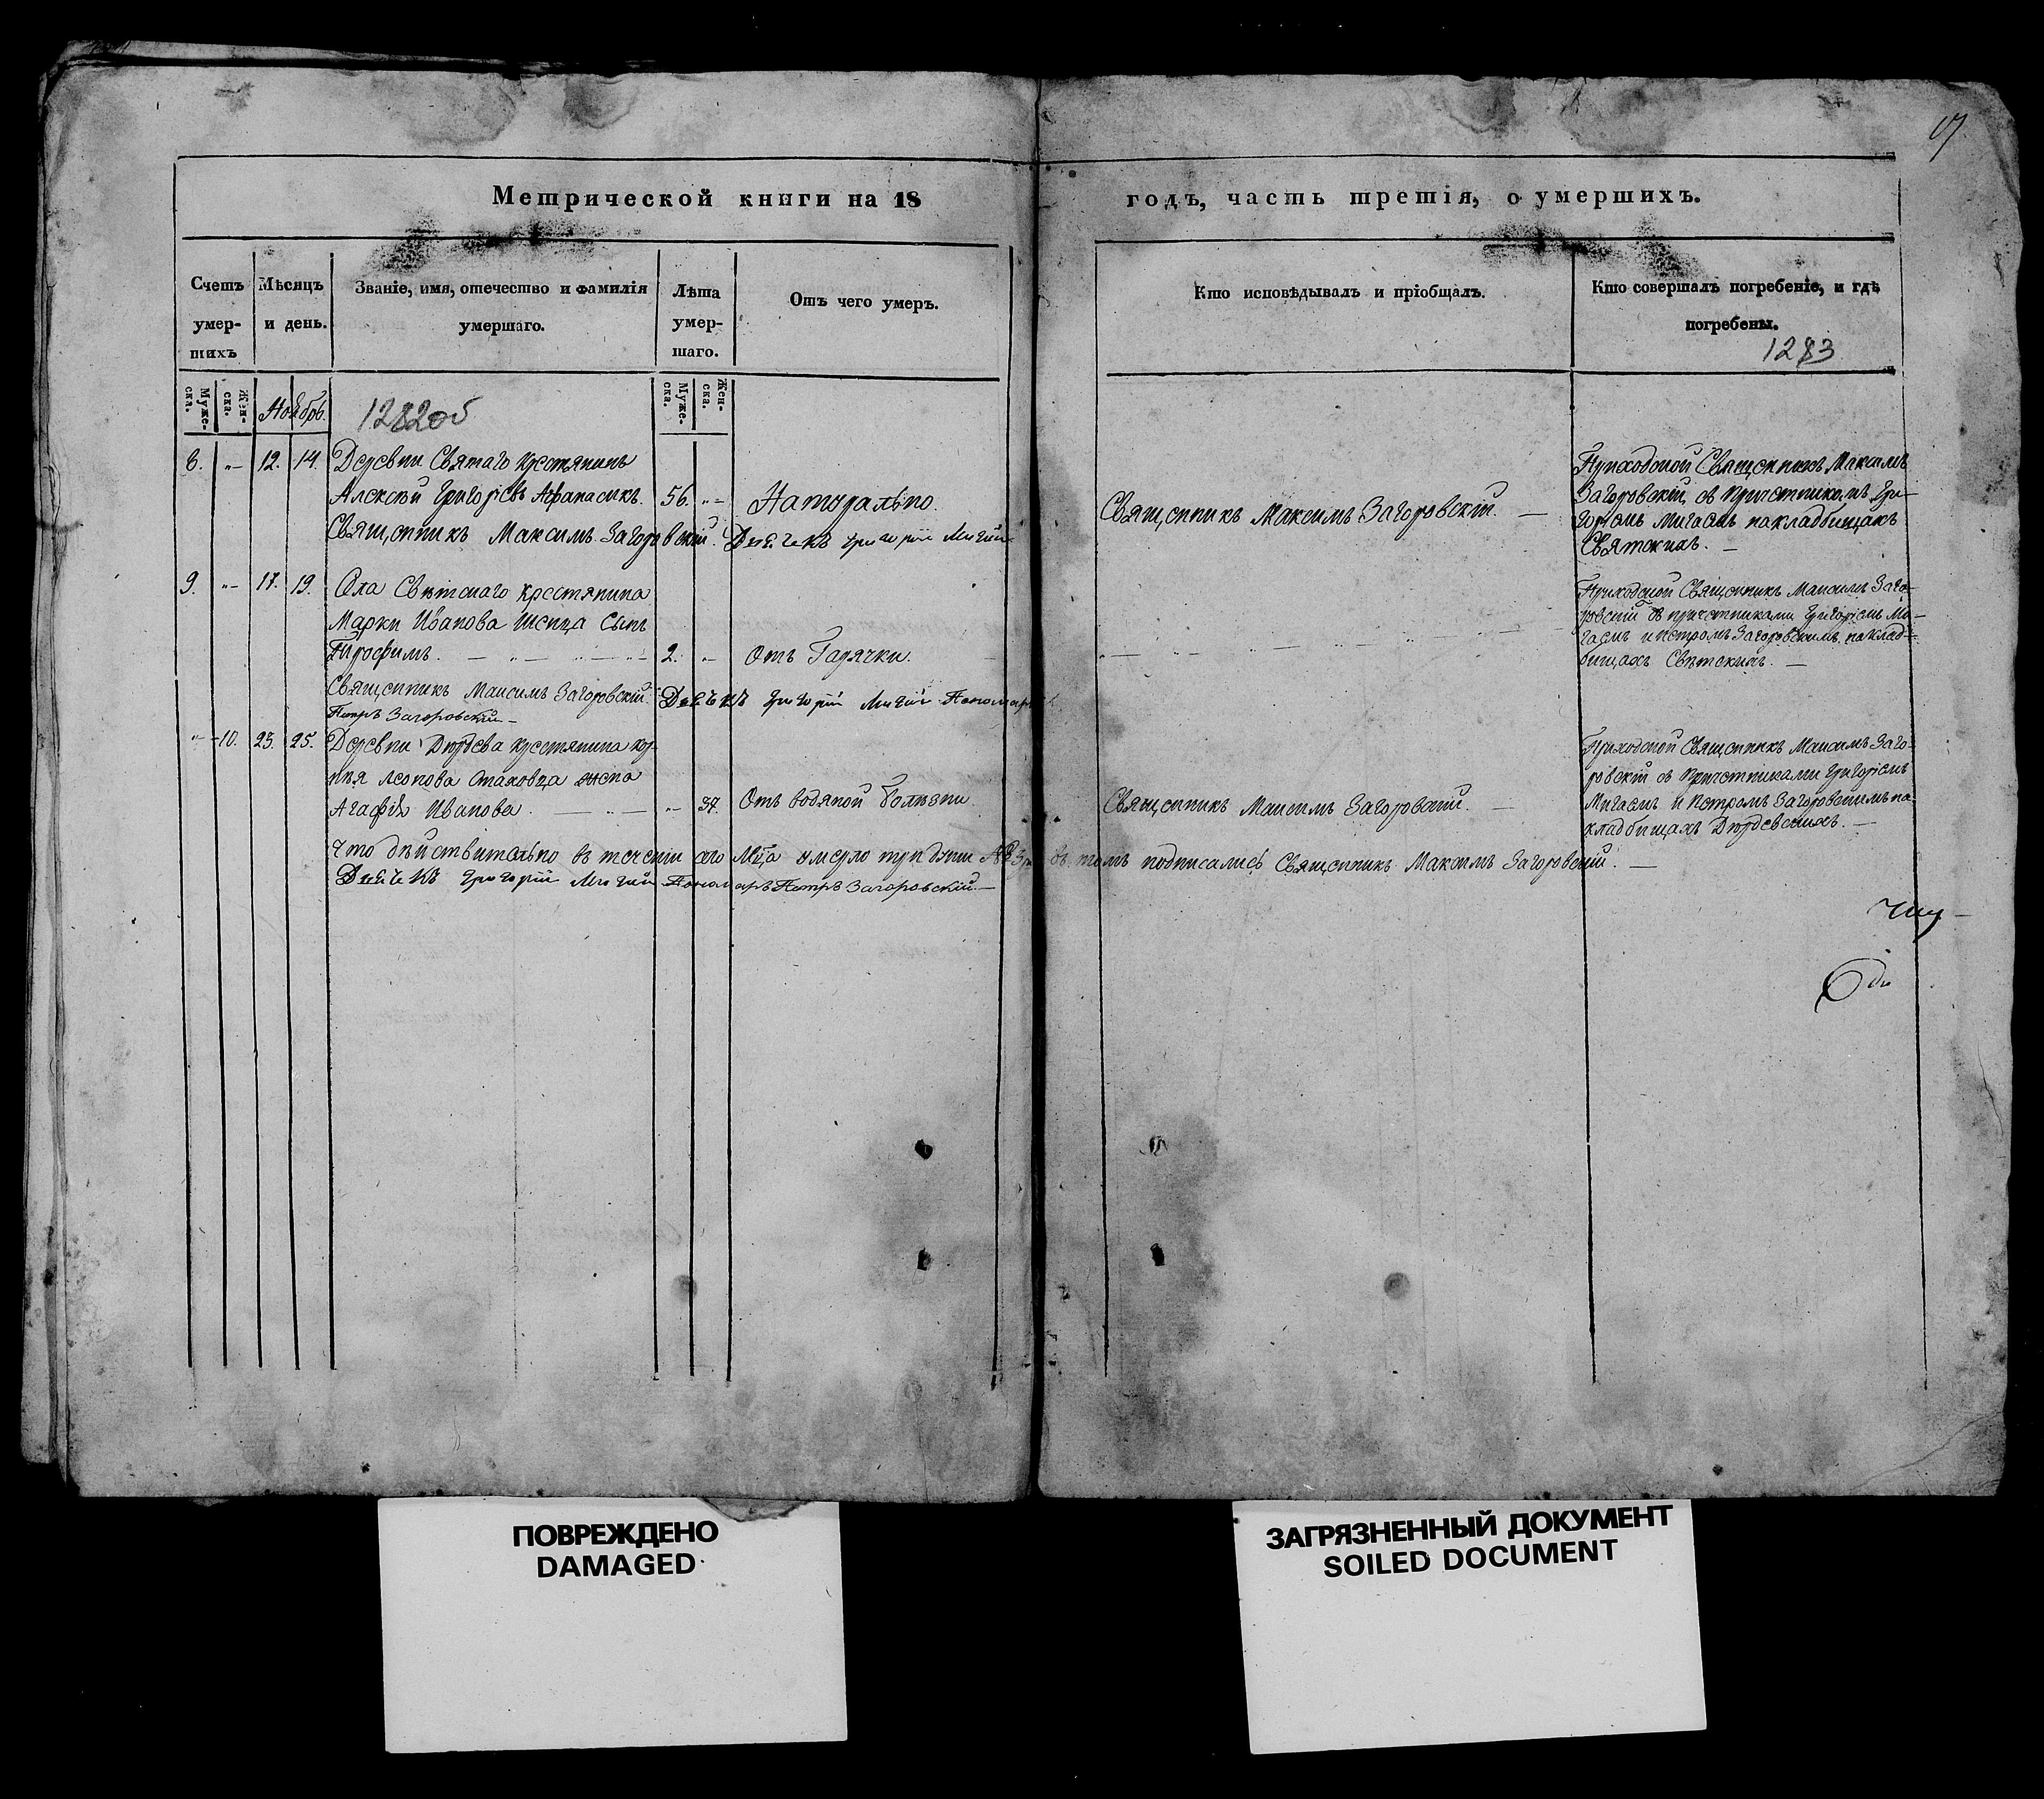 17
Метрической книги на 18 годъ, часть третія, о умершихъ.
Счетъ умер-шихъ
Мѣсяцъ и день.
Званіе, имя, отечество и фамилія умершаго.
Лѣта умер-шаго.
Отъ чего умеръ.
Кто исповѣдывалъ и пріобщалъ.
Кто совершалъ погребеніе, и гдѣ погребены.
1283
Муже-ска.
Жен-ска.
Ноябрь.
1282об
Муже-ска.
Жен-ска.
8. „— 12. 14. Деревни Святаго крестянинъ
Алексѣй Григоріевъ Афанасикъ. 56. „— Натурально.
Священникъ Максимъ Загоровскій. Дьячекъ Григорій Мигай
Священникъ Максимъ Загоровскій. —
Приходской Священникъ Максимъ
Загоровскій съ причетникомъ Гри-
горіемъ Мигаемъ на кладбищахъ
Святскихъ. —
9. „— 17. 19. Села Свѣтскаго крестянина
Марки Иванова сынъ
Трофимъ. — „ — „ — 2. „ Отъ Гарячки.
Священникъ Максимъ Загоровскій. Дьячекъ Григорій Мигай Пономарь
Петръ Загоровскій —
Приходской Священникъ Максимъ Заго-
ровскій съ причетниками Григоріемъ Ми-
гаемъ и Петромъ Загоровскимъ на клад-
бищахъ Свѣтскихъ. —
„ — 10. 23. 25. Деревни крестянина Кор-
нея Леонова жена
Агафія Иванова. — „ — „— 37. Отъ водяной болѣзни
Священникъ Максимъ Загоровскій. —
Приходской Священникъ Максимъ Заго-
ровскій съ причетниками Григоріемъ
Мигаемъ и Петромъ Загоровскимъ на
кладбищахъ
Что дѣйствительно въ теченіи сего Мца умерло три души №3 въ томъ подписались Священникъ Максимъ Загоровскій. —
Дьячекъ Григорій Мигай Пономарь Петръ Загоровскій. —
ПОВРЕЖДЕНО
DAMAGED
ЗАГРЯЗНЕННЫЙ ДОКУМЕНТ
SOILED DOCUMENT